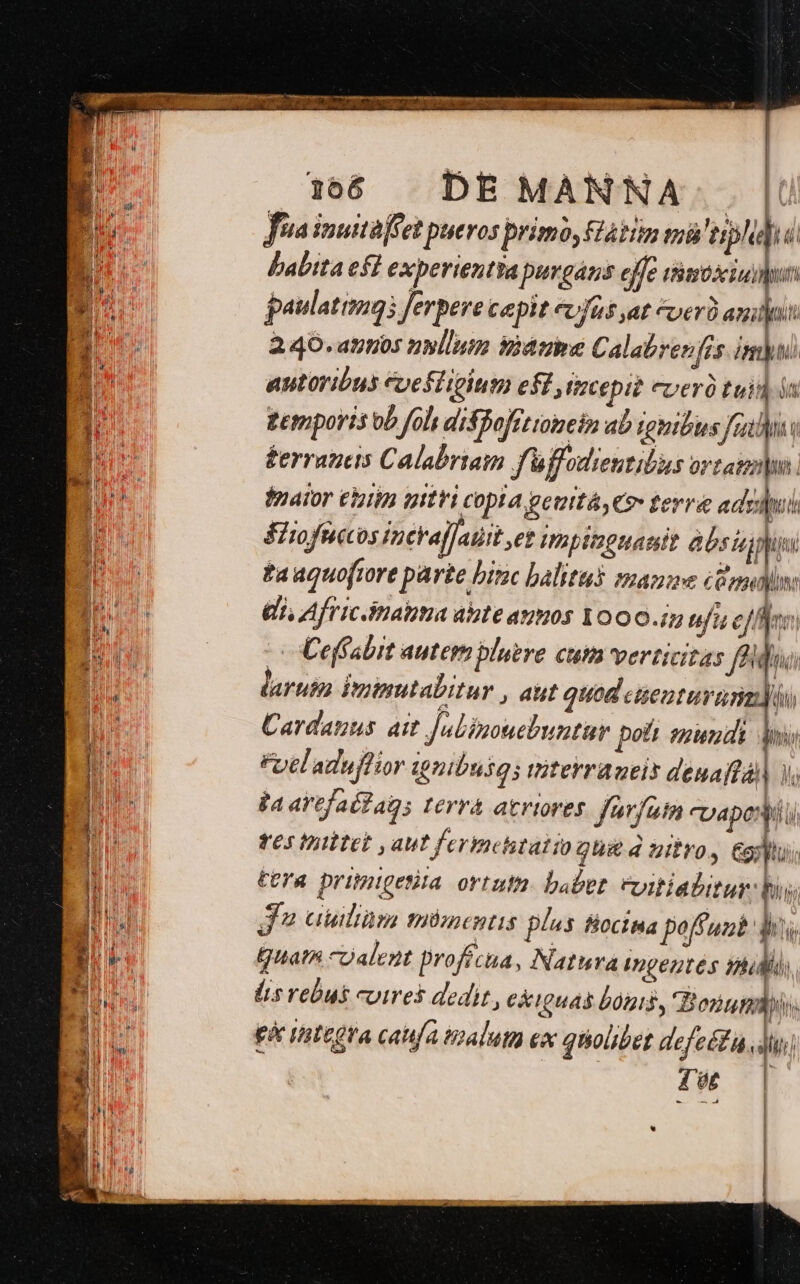 106 DE MANNA
sua inuitâsset pueros primò, statim
habita est experientia purgans esse
paulatimq; serpere cœpit vsus, at verò
240. annos nullum mannæ Calabrensis
autoribus vestigium est, incepit verò
temporis ob soli dispositionem ab ignibus
terraneis Calabriam suffodientibus
maior enim nitri copia genita, & terræ
stiosuccos incrassauit, et impinguauit
ta aquosiore parte hinc halitus mannæ
di, Afric. manna ante annos 1000. in usu
Cessabit autem pluere cum verticitas
larum immutabitur, aut quod euenturum
Cardanus ait subinouebuntur poli mundi
vel adustior ignibusq; interraneis
ta arefactaq; terrâ atriores sursum
res mittet, aut fermentatio quæ à nitro,
tera primigenia ortum habet vitiabitur:
In ciuilium momentis plus nociua possunt
quam valent proficua, Natura ingentes
lis rebus vires dedit, exiguas bonis,
ex integra causa malum ex quolibet defectu.
Tot